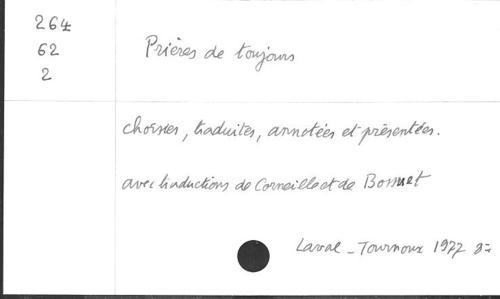 264
62
2
Prières de toujours
choisies, traduites, annotées et présentées.
avec traductions de Corneille et de Bossuet
Laval - Tournoux 1977 8=